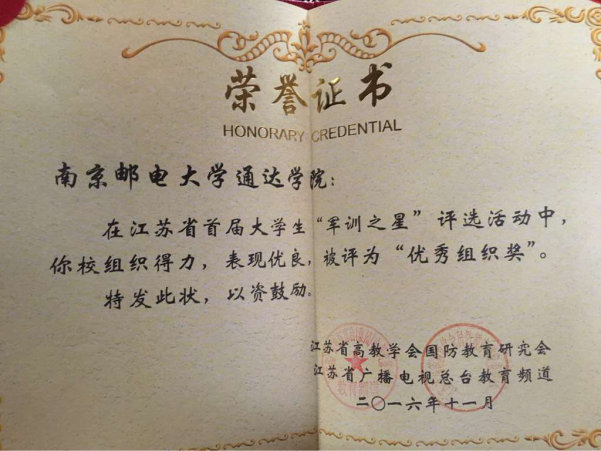 荣誉证书
HONORARY CREDENTIAL
南京邮电大学通达学院：
在江苏省首届大学生“军训之星”评选活动中，
你校组织得力，表现优良，被评为“优秀组织奖”。
特发此状，以资鼓励。
江苏省高教学会国防教育研究会
江苏省广播电视总台教育频道
二〇一六年十一月